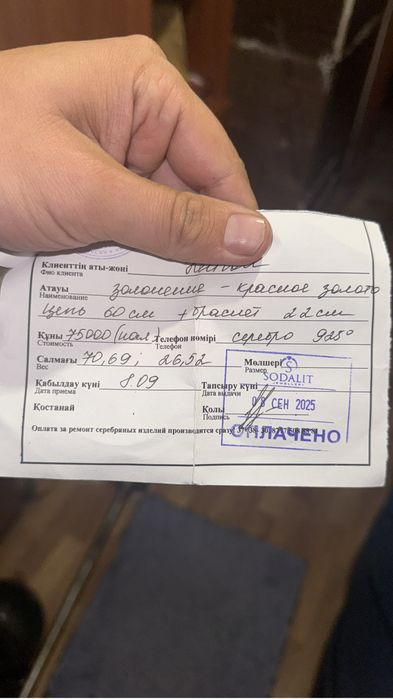 Клиенттің аты-жөні
Фио клиента
Атауы золочение - красное золото
Наименование
Цепь 60 см + браслет 22 см
Құны 75000 (нал) Телефон нөмірі серебро 925°
Стоимость Телефон
Салмағы 70,69; 26,52 Мөлшері
Вес Размер
SODALIT
Қабылдау күні 8.09 Тапсыру күні
Дата приема Дата выдачи
08 СЕН 2025
Қостанай Қолы
Подпись
ОПЛАЧЕНО
Оплата за ремонт серебряных изделий производится сразу!